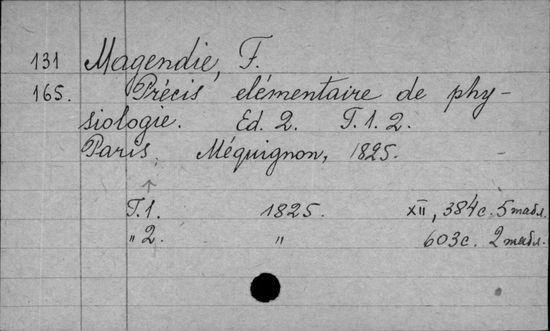 131 Magendie, F.
165. Précis elémentaire de phy-
siologie. Ed. 2. T. 1. 2.
Paris, Méquignon, 1825.
T. 1. 1825. XII, 384 с. 5 табл.
" 2. " 603 с. 2 табл.